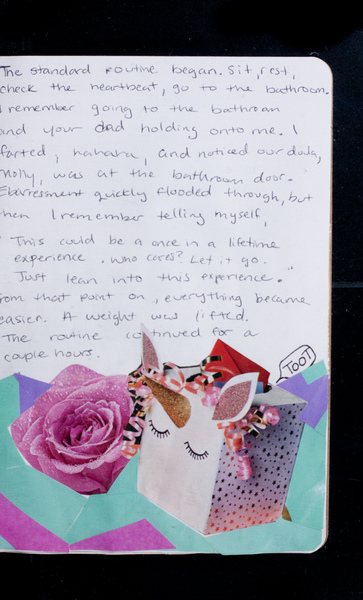 The standard routine began. Sit, rest,
check the heartbeat, go to the bathroom.
I remember going to the bathroom
and your dad holding onto me. I
farted, hahaha, and noticed our doula,
Molly, was at the bathroom door.
Ebarressment quickly flooded through, but
then I remember telling myself,
"This could be a once in a lifetime
experience. Who cares? Let it go.
Just lean into this experience."
From that point on, everything became
easier. A weight was lifted.
The routine continued for a
couple hours.
TOOT